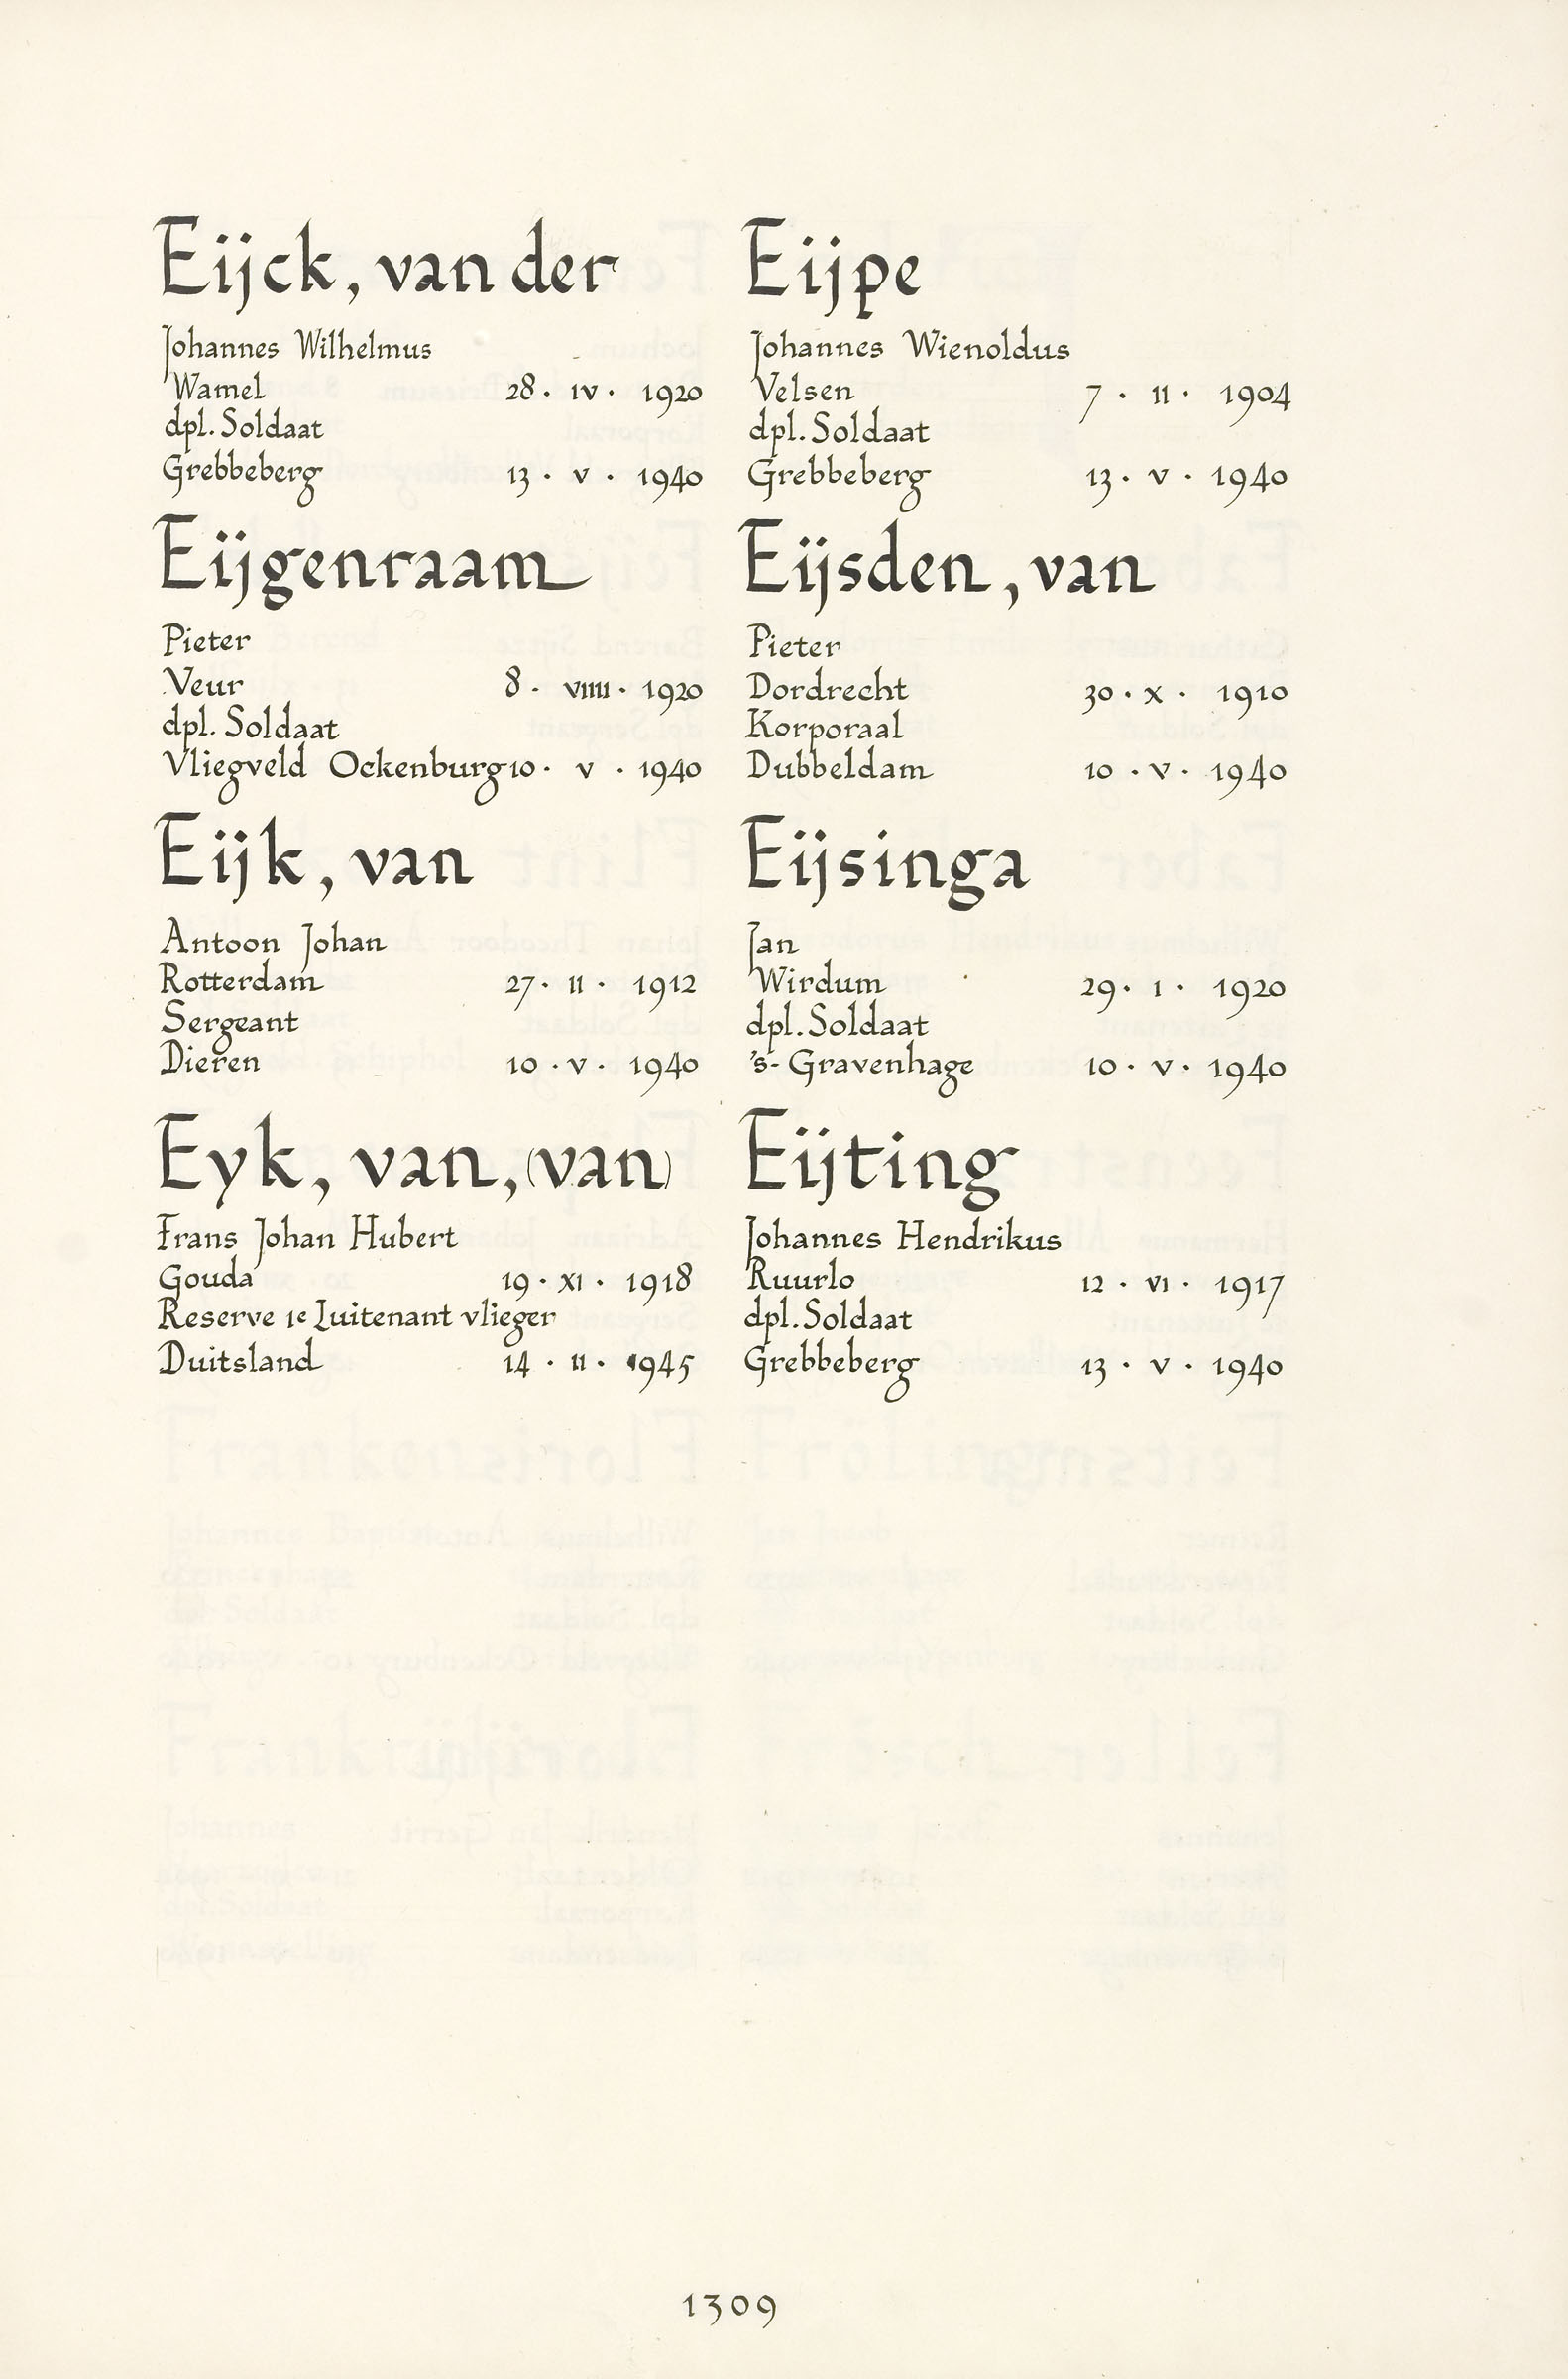 Eijck, van der
Johannes Wilhelmus
Wamel 28 · IV · 1920
dpl. Soldaat
Grebbeberg 13 · V · 1940
Eijgenraam
Pieter
Veur 8 · VIIII · 1920
dpl. Soldaat
Vliegveld Ockenburg 10 · V · 1940
Eijk, van
Antoon Johan
Rotterdam 27 · II · 1912
Sergeant
Dieren 10 · V · 1940
Eyk, van, (van)
Frans Johan Hubert
Gouda 19 · XI · 1918
Reserve 1e Luitenant vlieger
Duitsland 14 · II · 1945
Eijpe
Johannes Wienoldus
Velsen 7 · II · 1904
dpl. Soldaat
Grebbeberg 13 · V · 1940
Eijsden, van
Pieter
Dordrecht 30 · X · 1910
Korporaal
Dubbeldam 10 · V · 1940
Eijsinga
Jan
Wirdum 29 · I · 1920
dpl. Soldaat
's-Gravenhage 10 · V · 1940
Eijting
Johannes Hendrikus
Ruurlo 12 · VI · 1917
dpl. Soldaat
Grebbeberg 13 · V · 1940
1309